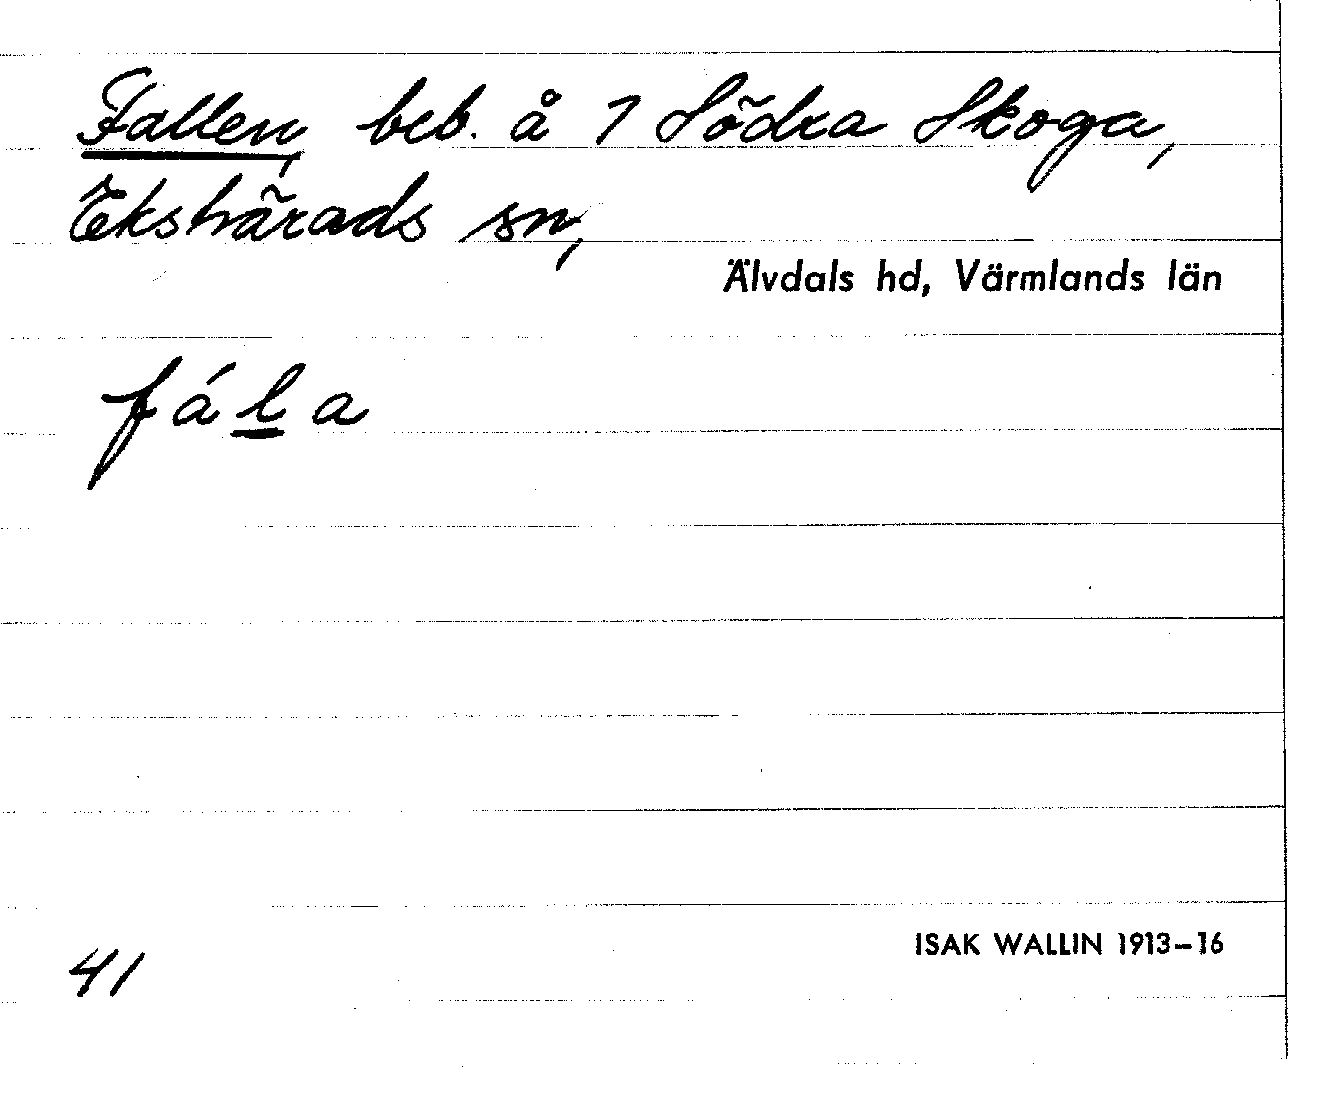 Fallen, beb. å 7 Södra Skoga,
Ekshärads sn,
Älvdals hd, Värmlands län
fála
41
ISAK WALLIN 1913–16